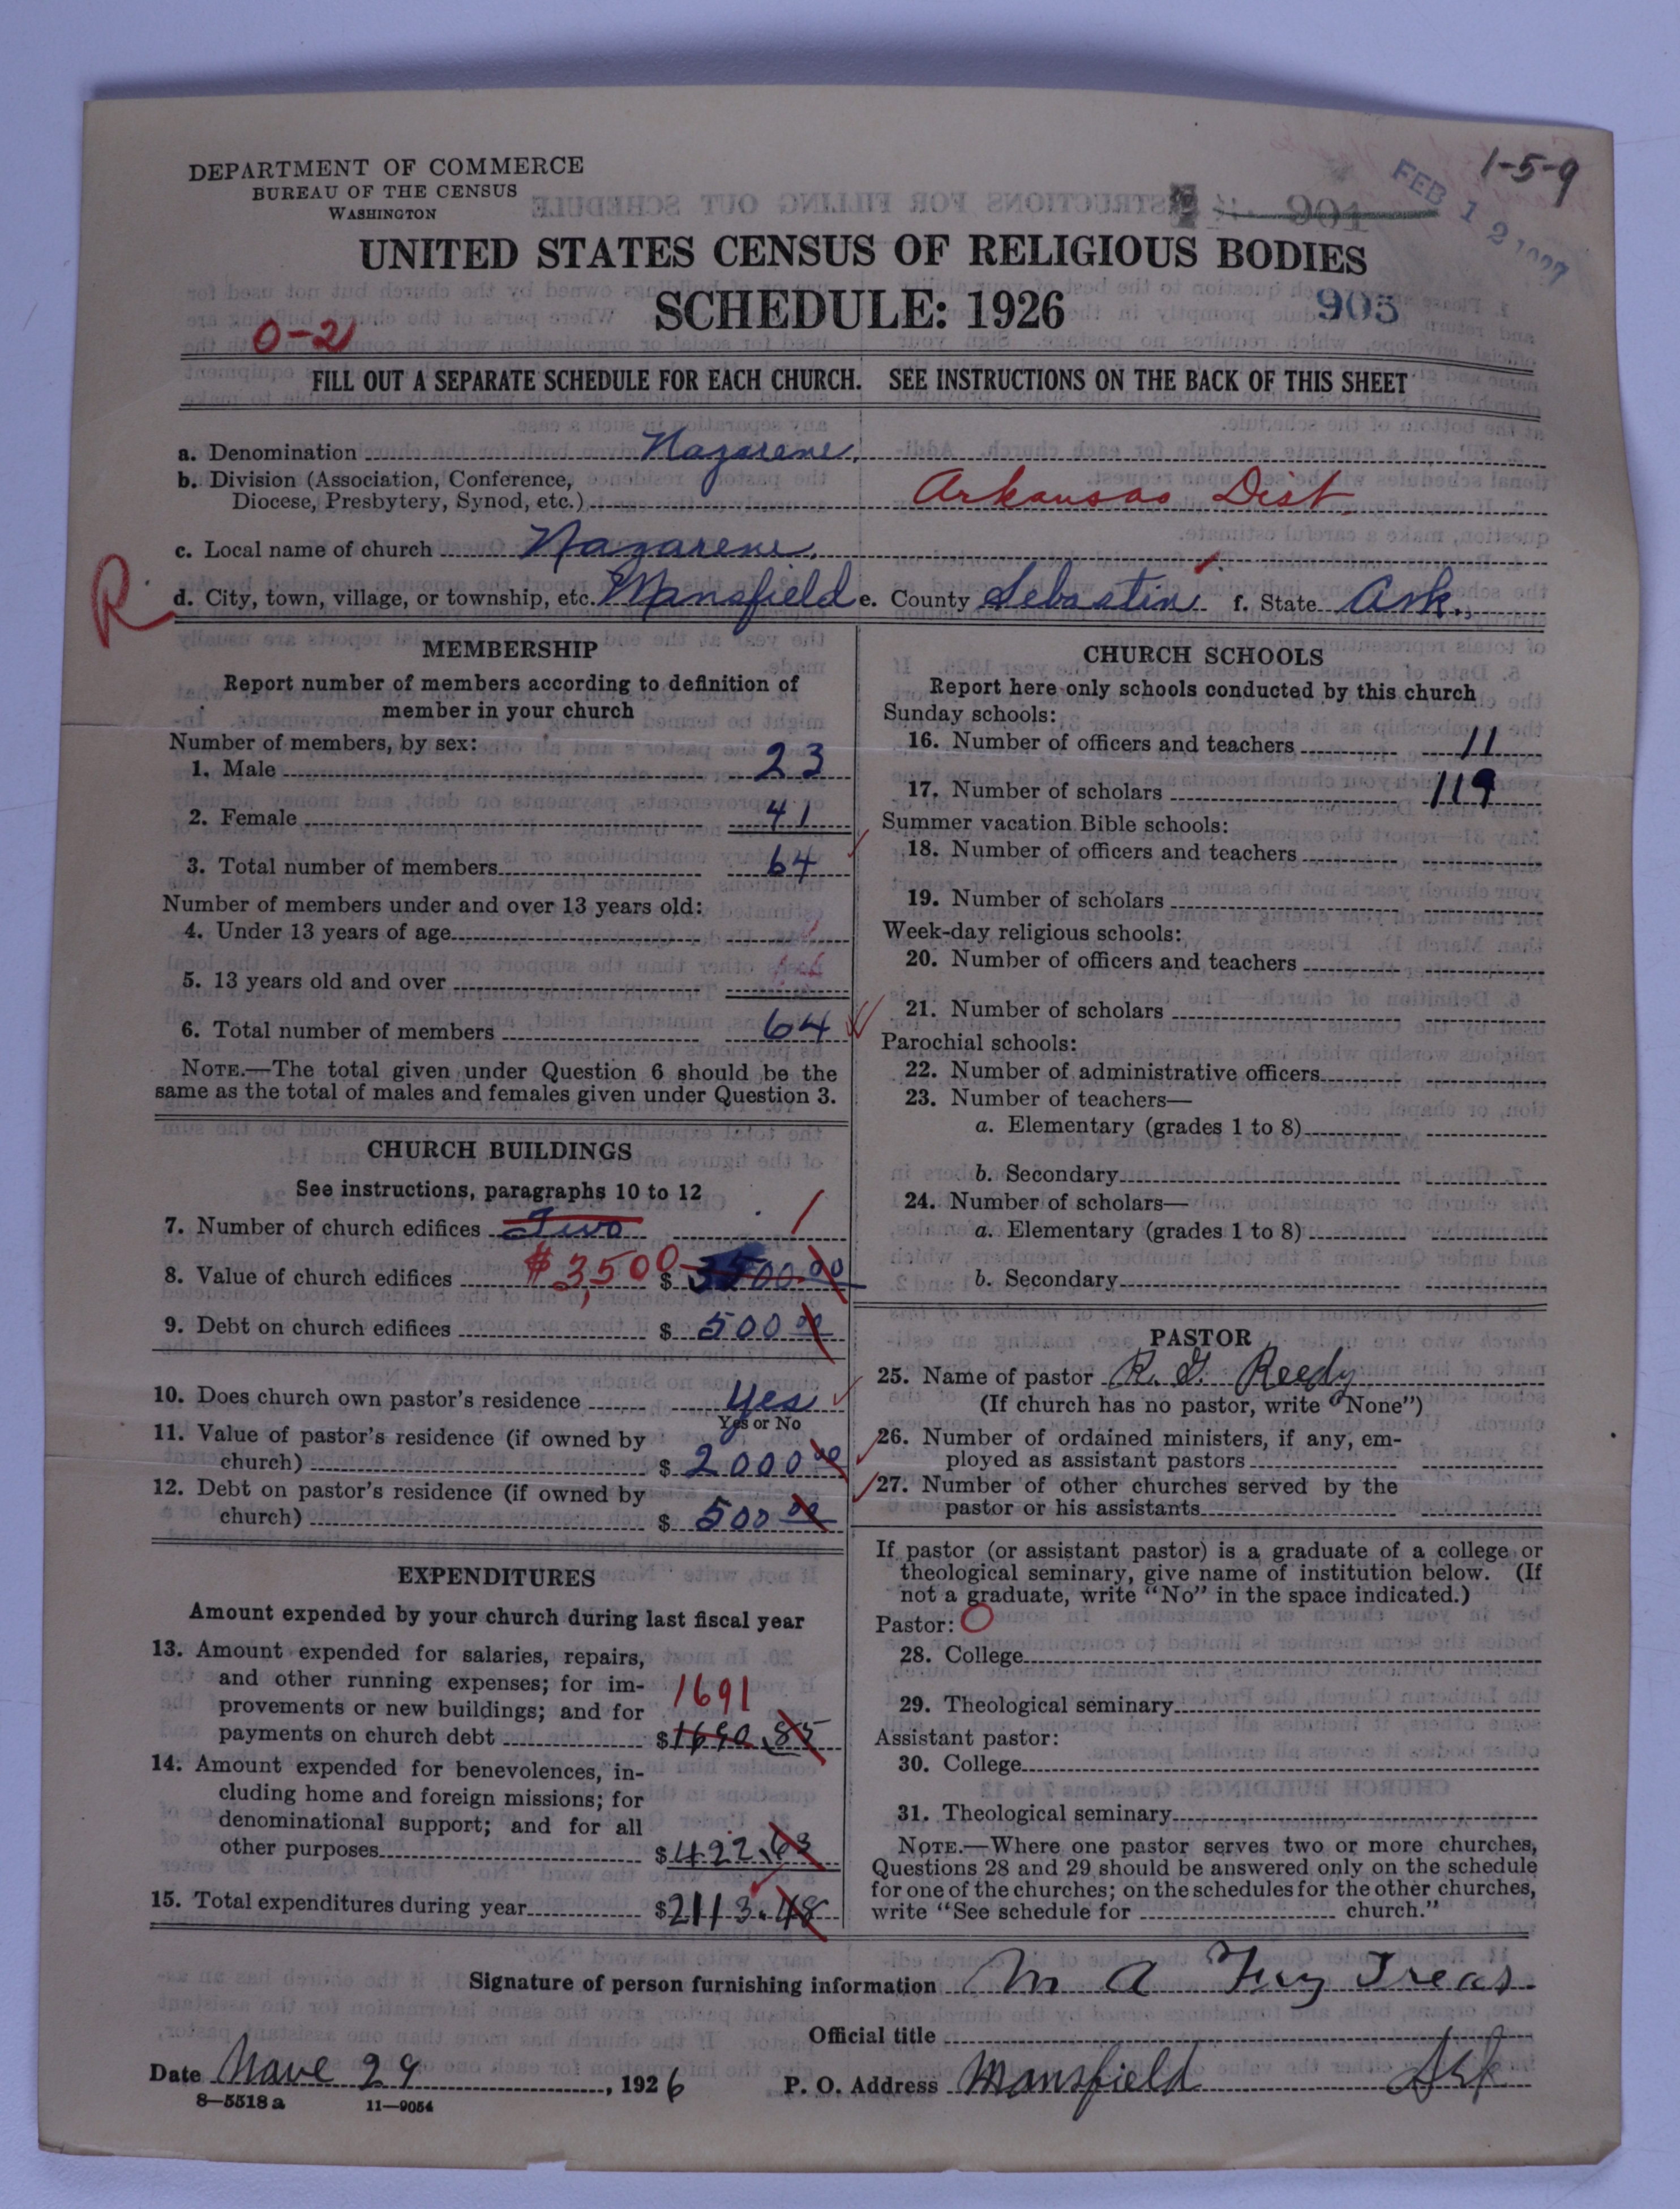 DEPARTMENT OF COMMERCE
BUREAU OF THE CENSUS
WASHINGTON
1-5-9
FEB 12 1927
904
UNITED STATES CENSUS OF RELIGIOUS BODIES
SCHEDULE: 1926
903
0-21
FILL OUT A SEPARATE SCHEDULE FOR EACH CHURCH. SEE INSTRUCTIONS ON THE BACK OF THIS SHEET
a. Denomination Nazarene.
b. Division (Association, Conference,
Diocese, Presbytery, Synod, etc.) Arkansas Dist.
c. Local name of church Nazarene.
R
d. City, town, village, or township, etc. Mansfield e. County Sebastin f. State Ark.
MEMBERSHIP
Report number of members according to definition of
member in your church
Number of members, by sex:
1. Male 23
2. Female 41
3. Total number of members 64
Number of members under and over 13 years old:
4. Under 13 years of age
5. 13 years old and over
6. Total number of members 64
NOTE.—The total given under Question 6 should be the
same as the total of males and females given under Question 3.
CHURCH BUILDINGS
See instructions, paragraphs 10 to 12
7. Number of church edifices Two 1
8. Value of church edifices $3,500 $ 3500.00
9. Debt on church edifices $ 500 00
10. Does church own pastor's residence Yes
Yes or No
11. Value of pastor's residence (if owned by
church) $ 2000 00
12. Debt on pastor's residence (if owned by
church) $ 500 00
EXPENDITURES
Amount expended by your church during last fiscal year
13. Amount expended for salaries, repairs,
and other running expenses; for im-
provements or new buildings; and for 1691
payments on church debt $1690.85
14. Amount expended for benevolences, in-
cluding home and foreign missions; for
denominational support; and for all
other purposes $422.63
15. Total expenditures during year $2113.48
CHURCH SCHOOLS
Report here only schools conducted by this church
Sunday schools:
16. Number of officers and teachers 11
17. Number of scholars 119
Summer vacation Bible schools:
18. Number of officers and teachers
19. Number of scholars
Week-day religious schools:
20. Number of officers and teachers
21. Number of scholars
Parochial schools:
22. Number of administrative officers
23. Number of teachers—
a. Elementary (grades 1 to 8)
b. Secondary
24. Number of scholars—
a. Elementary (grades 1 to 8)
b. Secondary
PASTOR
25. Name of pastor R. G. Reedy
(If church has no pastor, write "None")
26. Number of ordained ministers, if any, em-
ployed as assistant pastors
27. Number of other churches served by the
pastor or his assistants
If pastor (or assistant pastor) is a graduate of a college or
theological seminary, give name of institution below. (If
not a graduate, write "No" in the space indicated.)
Pastor: O
28. College
29. Theological seminary
Assistant pastor:
30. College
31. Theological seminary
NOTE.—Where one pastor serves two or more churches,
Questions 28 and 29 should be answered only on the schedule
for one of the churches; on the schedules for the other churches,
write "See schedule for church."
Signature of person furnishing information M A Treas.
Official title
Date Nove 29, 1926 P. O. Address Mansfield Ark
8—5518a 11—9054